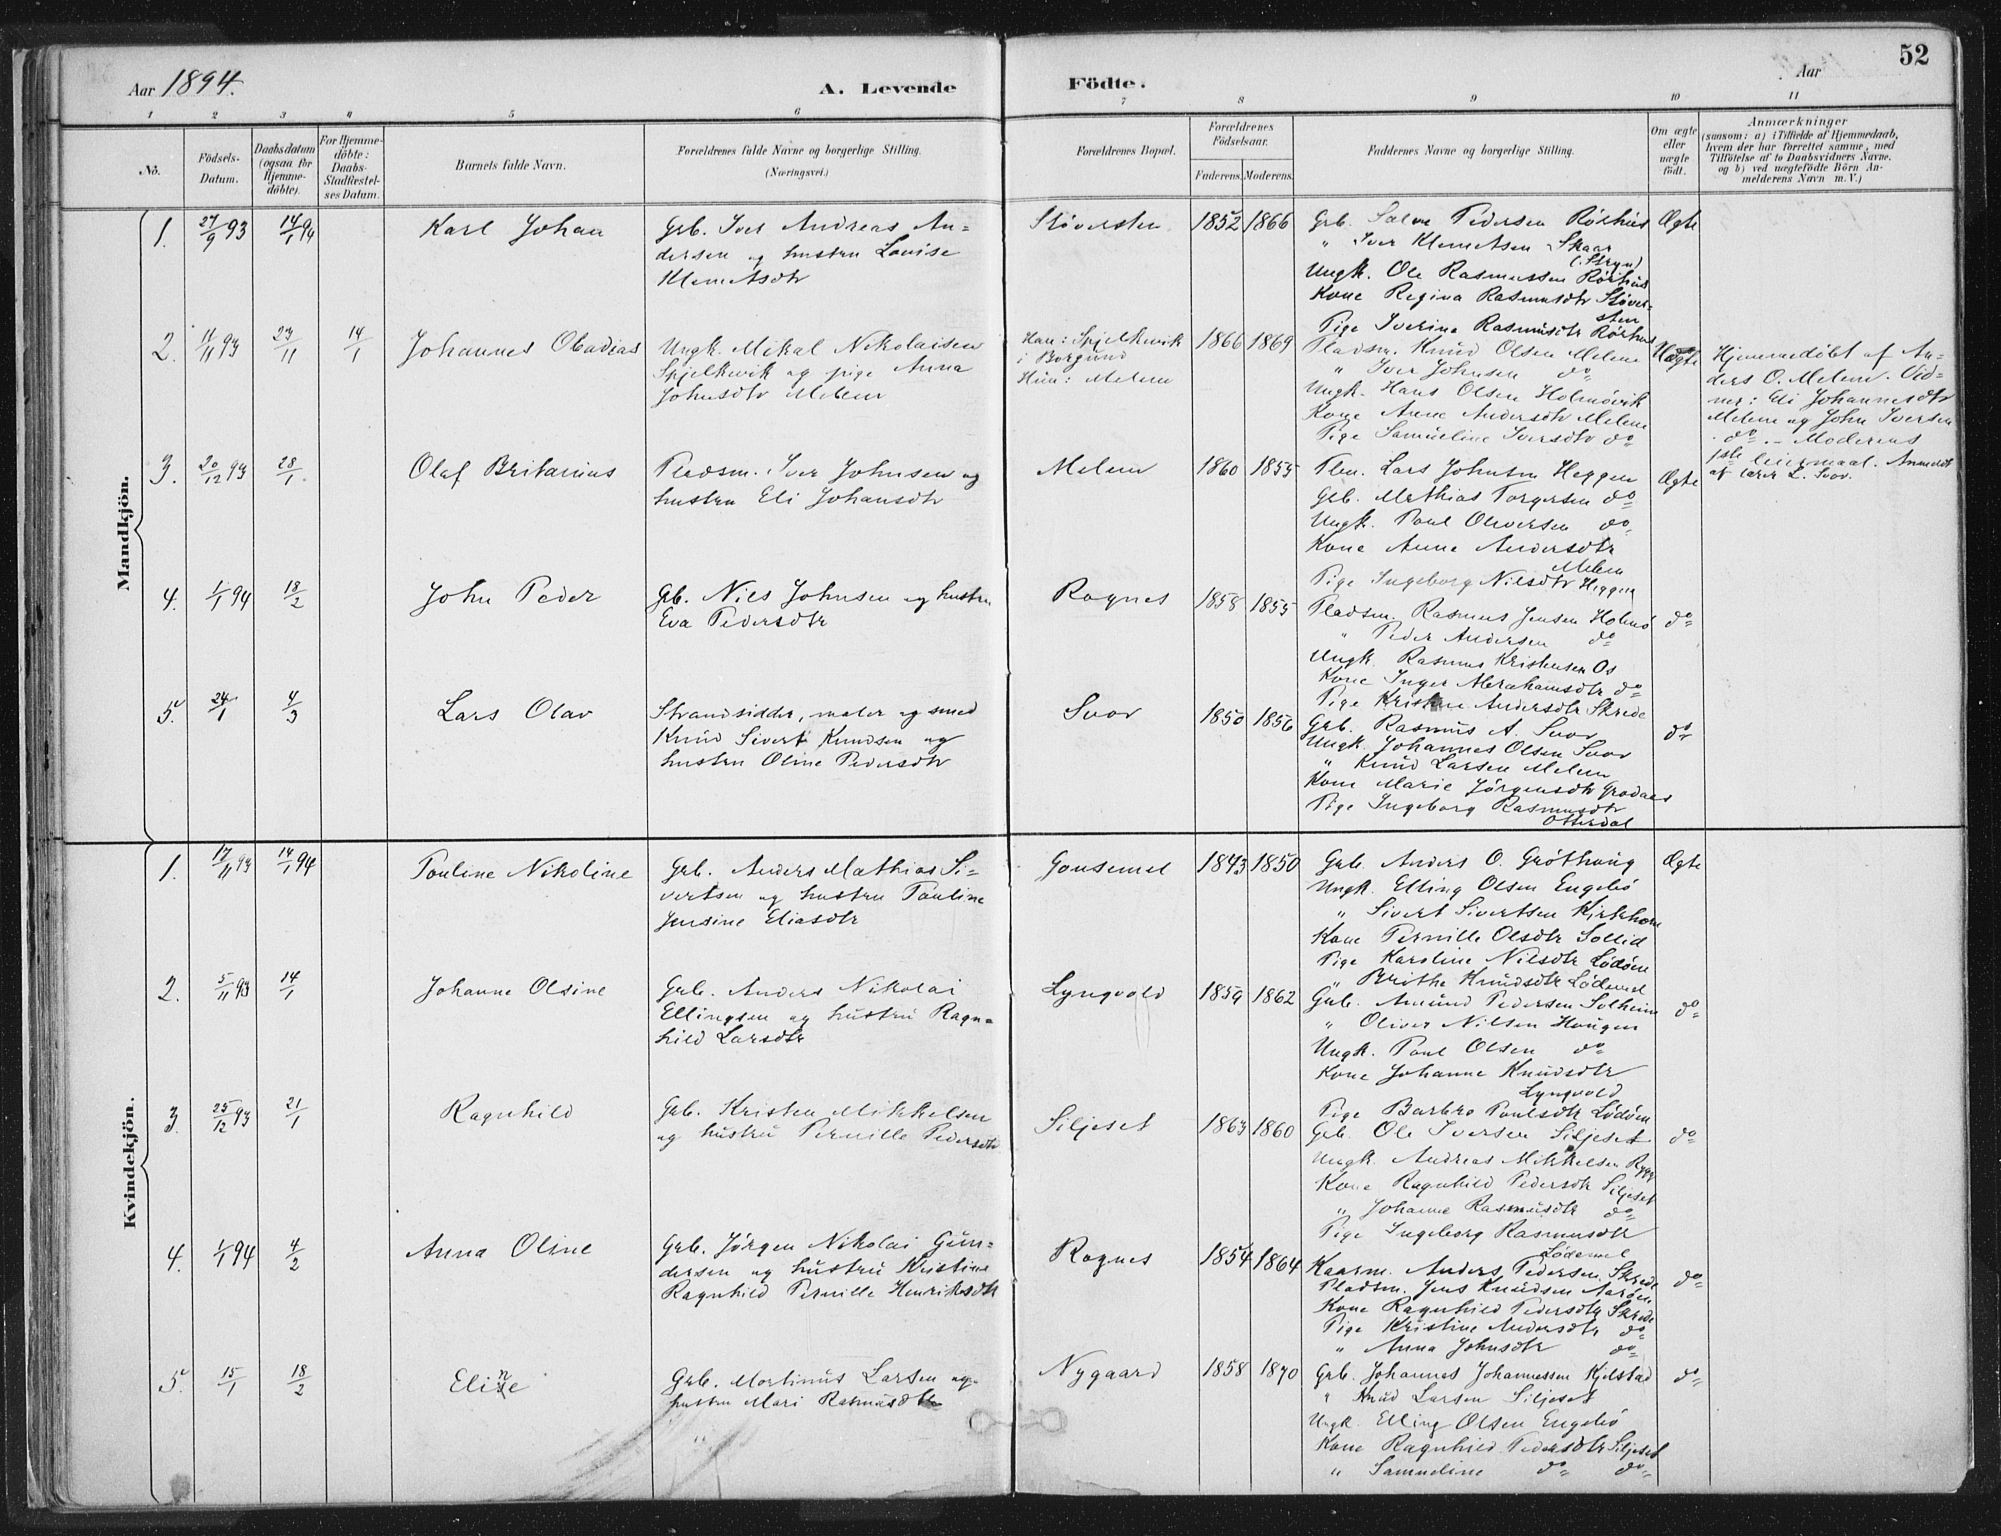 Aar 1894.
A. Levende
Födte.
Aar
52
1 2 3 4 5 6 7 8 9 10 11
No.
Födsels-
Datum.
Daabsdatum
(ogsaa for
Hjemme-
döbte).
For Hjemme-
döbte:
Daabs-
Stadfæstel-
ses Datum.
Barnets fulde Navn.
Forældrenes fulde Navne og borgerlige Stilling.
(Næringsvei.)
Forældrenes Bopæl.
Forældrenes
Födselsaar.
Faderens. Moderens.
Faddernes Navne og borgerlige Stilling.
Om ægte
eller
uægte
født.
Anmærkninger
(saasom: a) i Tilfælde af Hjemmedaab,
hvem der har forrettet samme, med
Tilföielse af to Daabsvidners Navne,
og b) ved uægtefödte Börn An-
melderens Navn m. V.)
Mandkjön.
1. 27/9 93 14/1 94 Karl Johan
Grb. Iver Andreas An-
dersen og hustru Louise
Klemetsdtr
Støversten 1852 1866
Grb. Salve Pedersen Rørhus Ægte
" Iver Klemetsen Skaar
(Stryn)
Ungk. Ole Rasmussen Rørhus
Kone Regina Rasmusdtr Støver-
sten
Pige Iverina Rasmusdtr Rørhus
2. 11/11 93 23/11 14/1 Johannes Obadias
Ungk. Mikal Nikolaisen
Spjelkevik og pige Anna
Johnsdtr Melem
Han: Spjelkevik
i Borgund
Hun: Melem
1866 1869
Pladsm. Knud Olsen Melem Uægte
" Iver Johnsen do
Ungk. Hans Olsen Holmøvik
Kone Anne Andersdtr Melem
Pige Samueline Iversdtr do
Hjemmedøbt af An-
ders O. Melem. Vid-
ner: Eli Johannesdtr
Melem og John Iversen
do. - Moderens
1ste leiermaal. Anmeldt
af lærer L. Svor.
3. 20/12 93 28/1 Olaf Britanius
Pladsm. Iver Johnsen og
hustru Eli Johansdtr
Melem 1860 1855
Plm. Lars Johnsen Heggen Ægte
Grb. Mathias Torgersen do
Ungk. Poul Oliversen do
Kone Anne Andersdtr
Melem
Pige Ingeborg Nilsdtr Heggen
4. 1/1 94 18/2 John Peder
Gb. Nils Johnsen og hustru
Eva Pedersdtr
Ragnes 1858 1855
Pladsm. Rasmus Jensen Holmø do
" Peder Andersen do
Ungk. Rasmus Kristensen Os
Kone Inger Abrahamsdtr do
Pige Kristine Andersdtr Skrede
5. 24/1 4/3 Lars Olav
Strandsidder, maler og smed
Knud Sivert Knudsen og
hustru Oline Pedersdtr
Svor 1850 1856
Grb. Rasmus A. Svor do
Ungk. Johannes Olsen Svor
" Knud Larsen Melem
Kone Marie Jørgensdtr Grodaas
Pige Ingeborg Rasmusdtr
Otterdal
Kvindekjön.
1. 17/11 93 14/1 94 Pauline Nikoline
Grb. Anders Mathias Si-
vertsen og hustru Pauline
Jensine Eliasdtr
Gausemel 1843 1850
Grb. Anders O. Grøthaug Ægte
Ungk. Elling Olsen Engebø
" Sivert Sivertsen Kirkhorn
Kone Pernille Olsdtr Sollid
Pige Karoline Nilsdtr Lødøen
" Brithe Knudsdtr Lødemel
2. 5/11 93 14/1 Johanne Olsine
Grb. Anders Nikolai
Ellingsen og hustru Ragn-
hild Larsdtr
Lyngvold 1859 1862
Grb. Amund Pedersen Solheim do
" Oliver Nilsen Haugen
Ungk. Poul Olsen do
Kone Johanne Knudsdtr
Lyngvold
Pige Barbro Poulsdtr Lødøen
3. 25/12 93 21/1 Ragnhild
Grb. Kristen Mikkelsen
og hustru Pernille Pedersdtr
Siljeset 1863 1860
Grb. Ole Iversen Siljeset do
Ungk. Andreas Mikkelsen Rygg
Kone Ragnhild Pedersdtr Siljeset
" Johanne Rasmusdtr do
Pige Ingeborg Rasmusdtr
Lødemel
4. 1/1 94 4/2 Anna Oline
Grb. Jørgen Nikolai Gun-
dersen og hustru Kristine
Ragnhild Pernille Henriksdtr
Ragnes 1854 1864
Kaarm. Anders Pedersen Skrede do
Pladsm. Jens Knudsen Aarøen
Kone Ragnhild Pedersdtr Skrede
Pige Kristine Andersdtr do
" Anna Johnsdtr do
5. 15/1 18/2 Eline
Grb. Martinus Larsen og
hustru Mari Rasmusdtr
"
Nygaard 1858 1870
Grb. Johannes Johannessen Kjelstad do
" Knud Larsen Siljeset
Ungk. Elling Olsen Engebø
Kone Ragnhild Pedersdtr Siljeset
" Samueline do do